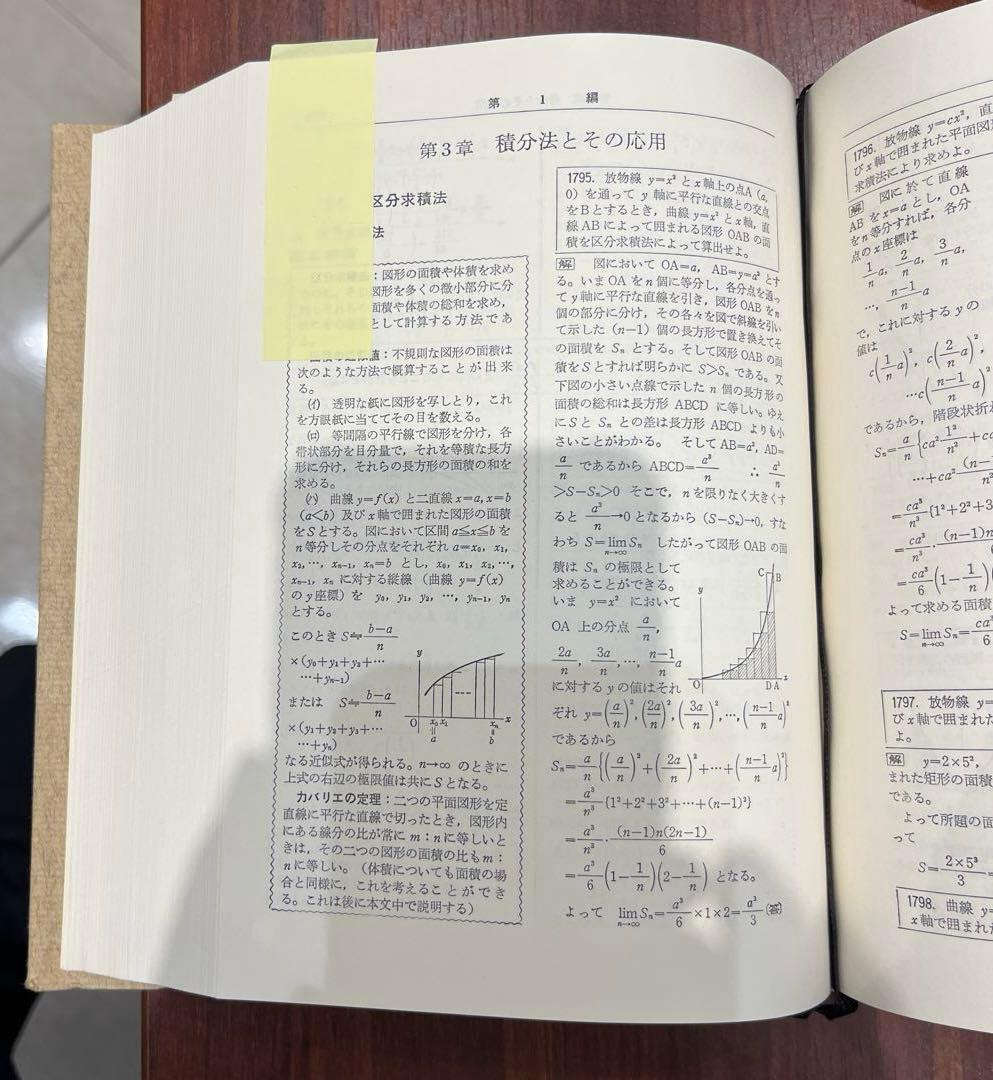 第1編
第3章 積分法とその応用
区分求積法
法
：図形の面積や体積を求め
図形を多くの微小部分に分
面積や体積の総和を求め，
として計算する方法であ
値：不規則な図形の面積は
次のような方法で概算することが出来
る。
(イ) 透明な紙に図形を写しとり，これ
を方眼紙に当ててその目を数える。
(ロ) 等間隔の平行線で図形を分け，各
帯状部分を目分量で，それを等積な長方
形に分け，それらの長方形の面積の和を
求める。
(ハ) 曲線 y=f(x) と二直線 x=a, x=b
(a<b) 及び x 軸で囲まれた図形の面積
を S とする。図において区間 a≦x≦b を
n 等分しその分点をそれぞれ a=x₀, x₁,
x₂,…, xₙ₋₁, xₙ=b とし，x₀, x₁, x₂,…,
xₙ₋₁, xₙ に対する縦線（曲線 y=f(x)
の y 座標）を y₀, y₁, y₂, …, yₙ₋₁, yₙ
とする。
このとき S≒(b−a)/n
×(y₀+y₁+y₂+…
…+yₙ₋₁)
または S≒(b−a)/n
×(y₁+y₂+y₃+…
…+yₙ)
y
O x₀ x₁ xₙ x
a b
なる近似式が得られる。n→∞ のときに
上式の右辺の極限値は共に S となる。
カバリエの定理：二つの平面図形を定
直線に平行な直線で切ったとき，図形内
にある線分の比が常に m：n に等しいと
きは，その二つの図形の面積の比も m：
n に等しい。（体積についても面積の場
合と同様に，これを考えることができ
る。これは後に本文中で説明する）
1795. 放物線 y=x² と x 軸上の点A (a,
0) を通って y 軸に平行な直線との交点
をBとするとき，曲線 y=x² と x 軸，直
線 AB によって囲まれる図形 OAB の面
積を区分求積法によって算出せよ。
解 図において OA=a，AB=y=a² とす
る。いま OA を n 個に等分し，各分点を通っ
て y 軸に平行な直線を引き，図形 OAB を n
個の部分に分け，その各々を図で斜線を引い
て示した (n−1) 個の長方形で置き換えてそ
の面積を Sₙ とする。そして図形 OAB の面
積を S とすれば明らかに S>Sₙ である。又
下図の小さい点線で示した n 個の長方形の
面積の総和は長方形 ABCD に等しい。ゆえ
に S と Sₙ との差は長方形 ABCD よりも小
さいことがわかる。 そして AB=a²，AD=
a/n であるから ABCD=a³/n ∴ a³/n
>S−Sₙ>0 そこで，n を限りなく大きくす
ると a³/n→0 となるから (S−Sₙ)→0，すな
わち S=lim Sₙ (n→∞) したがって図形 OAB の面
積は Sₙ の極限として
求めることができる。
いま y=x² において
OA 上の分点 a/n,
2a/n, 3a/n,…, (n−1)/n a
に対する y の値はそれ
y
C B
O D A x
ぞれ y=(a/n)², (2a/n)², (3a/n)²,…,((n−1)/n a)²
であるから
Sₙ=a/n{(a/n)²+(2a/n)²+…+((n−1)/n a)²}
=a³/n³{1²+2²+3²+…+(n−1)²}
=a³/n³·(n−1)n(2n−1)/6
=a³/6(1−1/n)(2−1/n) となる。
よって lim Sₙ (n→∞)=a³/6×1×2=a³/3 (答)
1796. 放物線 y=cx²，直
び x 軸で囲まれた平面図形
求積法により求めよ。
解 図に於て直線
AB を x=a とし，OA
を n 等分すれば，各分
点の x 座標は
1/n a, 2/n a, 3/n a,
…, (n−1)/n a
で，これに対する y の
値は
c(1/n a)², c(2/n a)²,
…c((n−1)/n a)²
であるから，階段状折
Sₙ=a/n{ca² 1²/n²+c
…+ca² (n−1)
=ca³/n³{1²+2²+3
=ca³/n³·(n−1)n(
=ca³/6(1−1/n)(
よって求める面積
S=lim Sₙ (n→∞)=ca³/6
1797. 放物線 y=
び x 軸で囲まれ
よ。
解 y=2×5²，
まれた矩形の面積
である。
よって所題の面
って
S=2×5³/3=
1798. 曲線 y=
x 軸で囲まれた